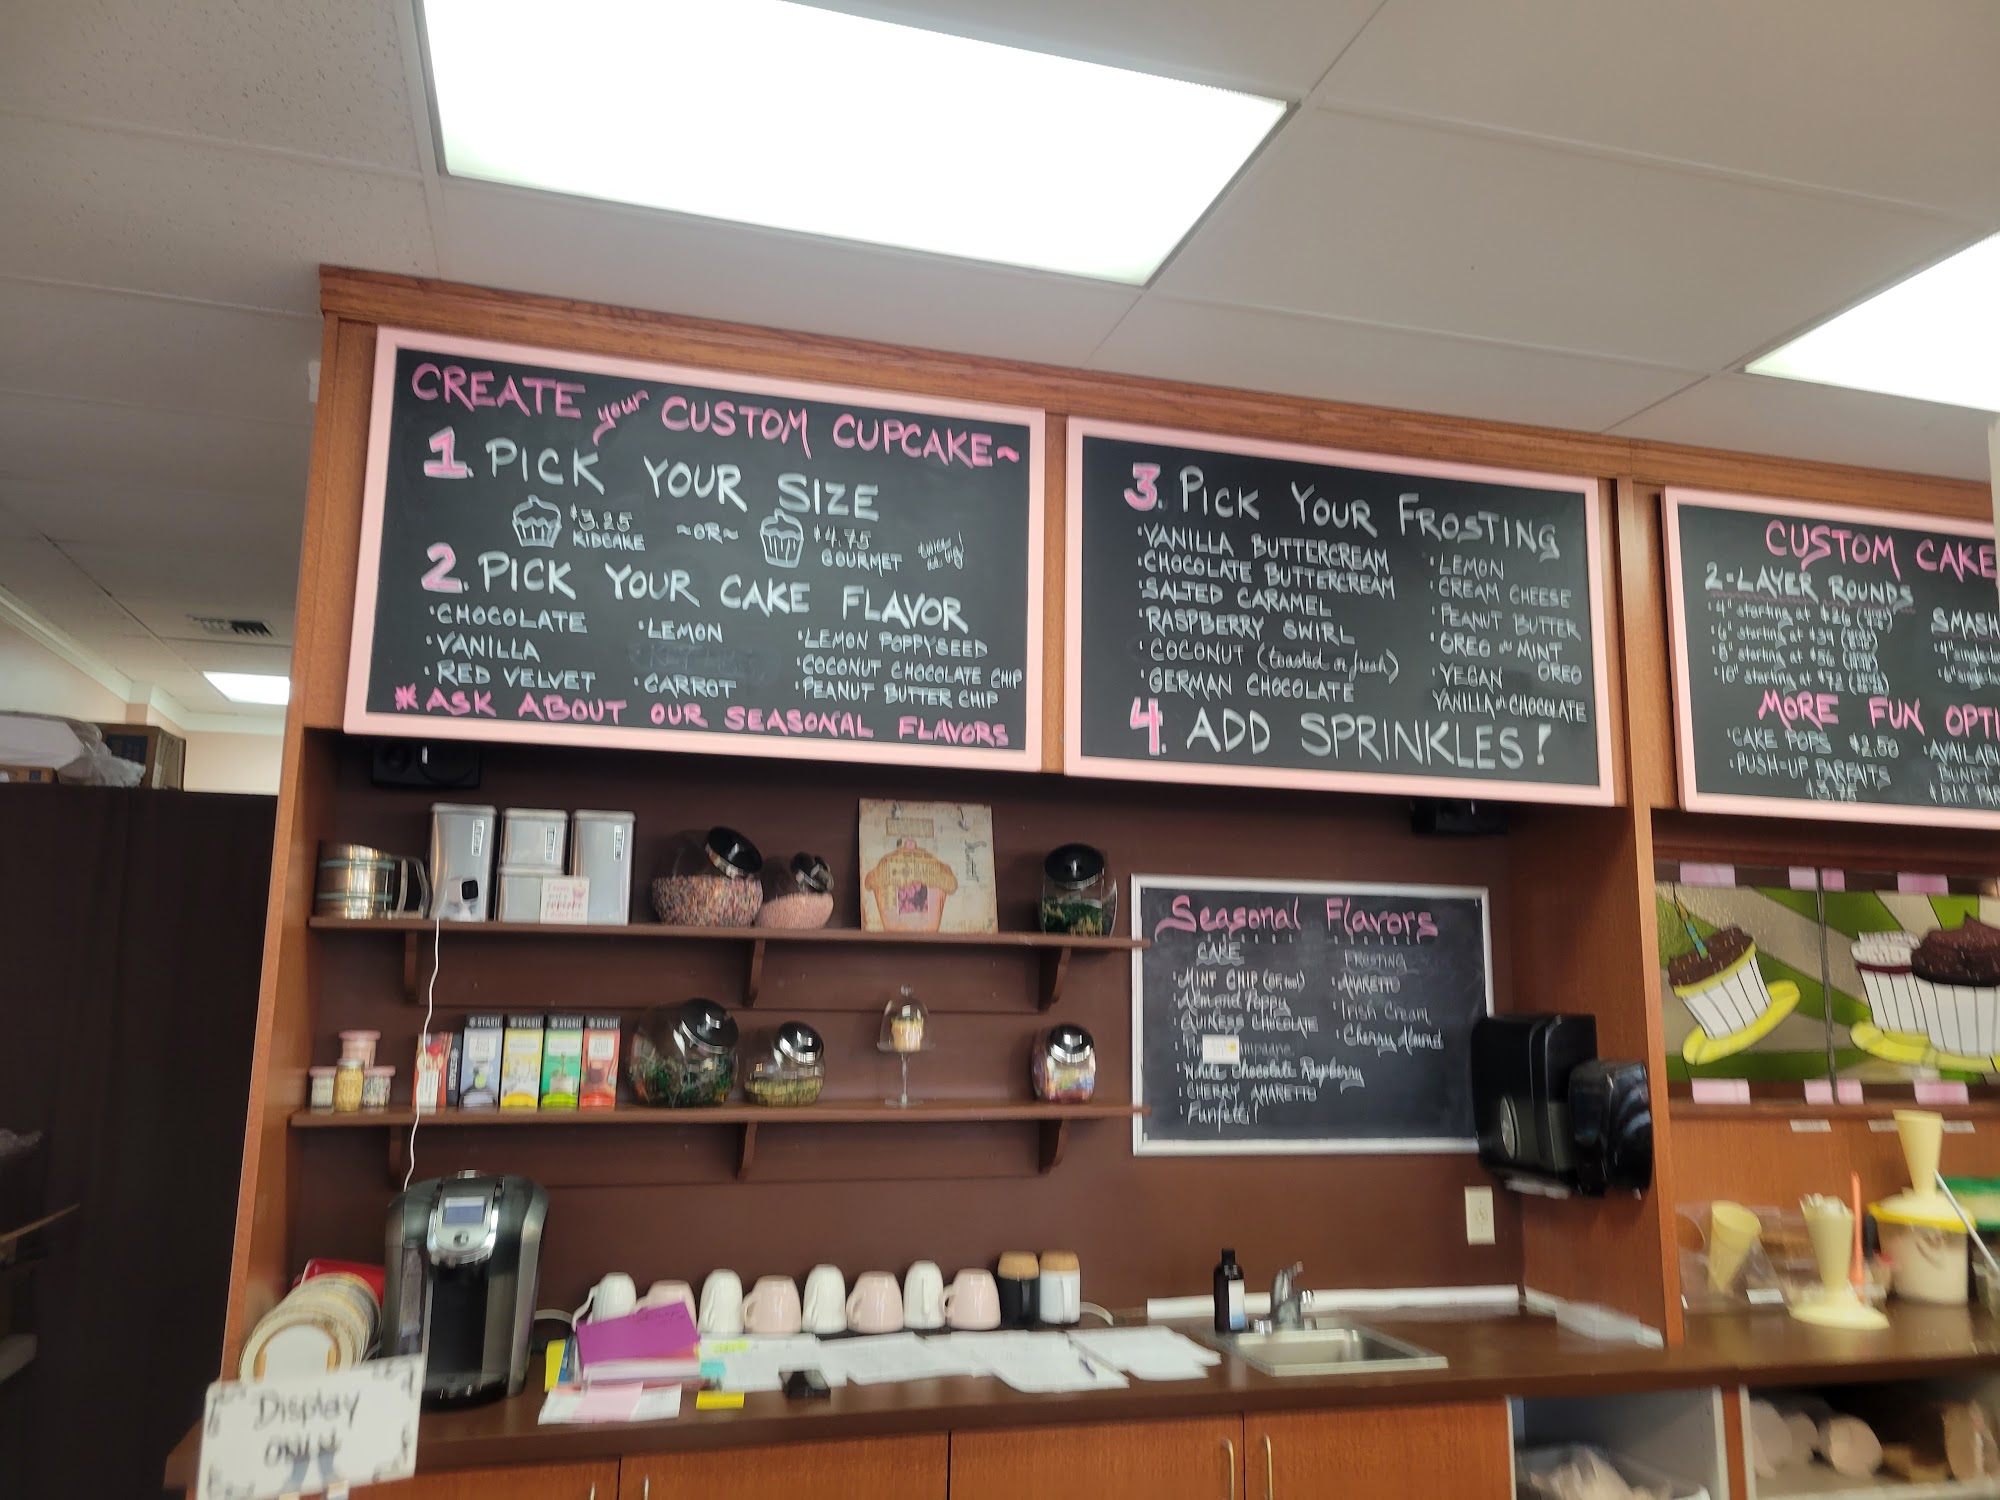 CREATE your CUSTOM CUPCAKE~
1. PICK YOUR SIZE
$3.25 KIDCAKE ~OR~ $4.75 GOURMET
2. PICK YOUR CAKE FLAVOR
·CHOCOLATE
·VANILLA
·RED VELVET
·LEMON
·CARROT
·LEMON POPPYSEED
·COCONUT CHOCOLATE CHIP
·PEANUT BUTTER CHIP
*ASK ABOUT OUR SEASONAL FLAVORS
3. PICK YOUR FROSTING
·VANILLA BUTTERCREAM
·CHOCOLATE BUTTERCREAM
·SALTED CARAMEL
·RASPBERRY SWIRL
·COCONUT (toasted or fresh)
·GERMAN CHOCOLATE
·LEMON
·CREAM CHEESE
·PEANUT BUTTER
·OREO or MINT
OREO
·VEGAN
VANILLA or CHOCOLATE
4. ADD SPRINKLES!
CUSTOM CAKE
2-LAYER ROUNDS
·4" starting at $26
·6" starting at $39
·8" starting at $56
·10" starting at $72
SMASH
MORE FUN OPTI
·CAKE POPS $2.50
·PUSH-UP PARFAITS
$3.75
·AVAILABL
Seasonal Flavors
CAKE
·MINT CHIP
·Almond Poppy
·GUINESS CHOCOLATE
·White Chocolate Raspberry
·CHERRY AMARETTO
·Funfetti!
FROSTING
·AMARETTO
·Irish Cream
·Cherry Almond
STASH
STASH
STASH
STASH
Display
ONLY